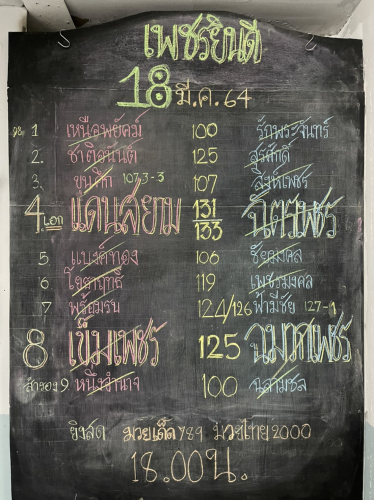 เพชรยินดี
18 มี.ค. 64
1 เหนือพยัคฆ์ 100 รักพระจันทร์
2. ชาติอนันต์ 125 สุรศักดิ์
3. ขุนศึก 107,3-3 107 สิงห์เพชร
4.เอก แดนสยาม 131 133 ฉัตรเพชร
5 106 ชัยมงคล
6 119 เพชรมงคล
7 พร้อมรบ 124/126 ฟ้ามีชัย 127-1
8 เข็มเพชร 125
สำรอง 9 หนึ่งอำนาจ 100 ฉลามชล
ยิงสด มวยเด็ด 789 มวยไทย 2000
18.00 น.